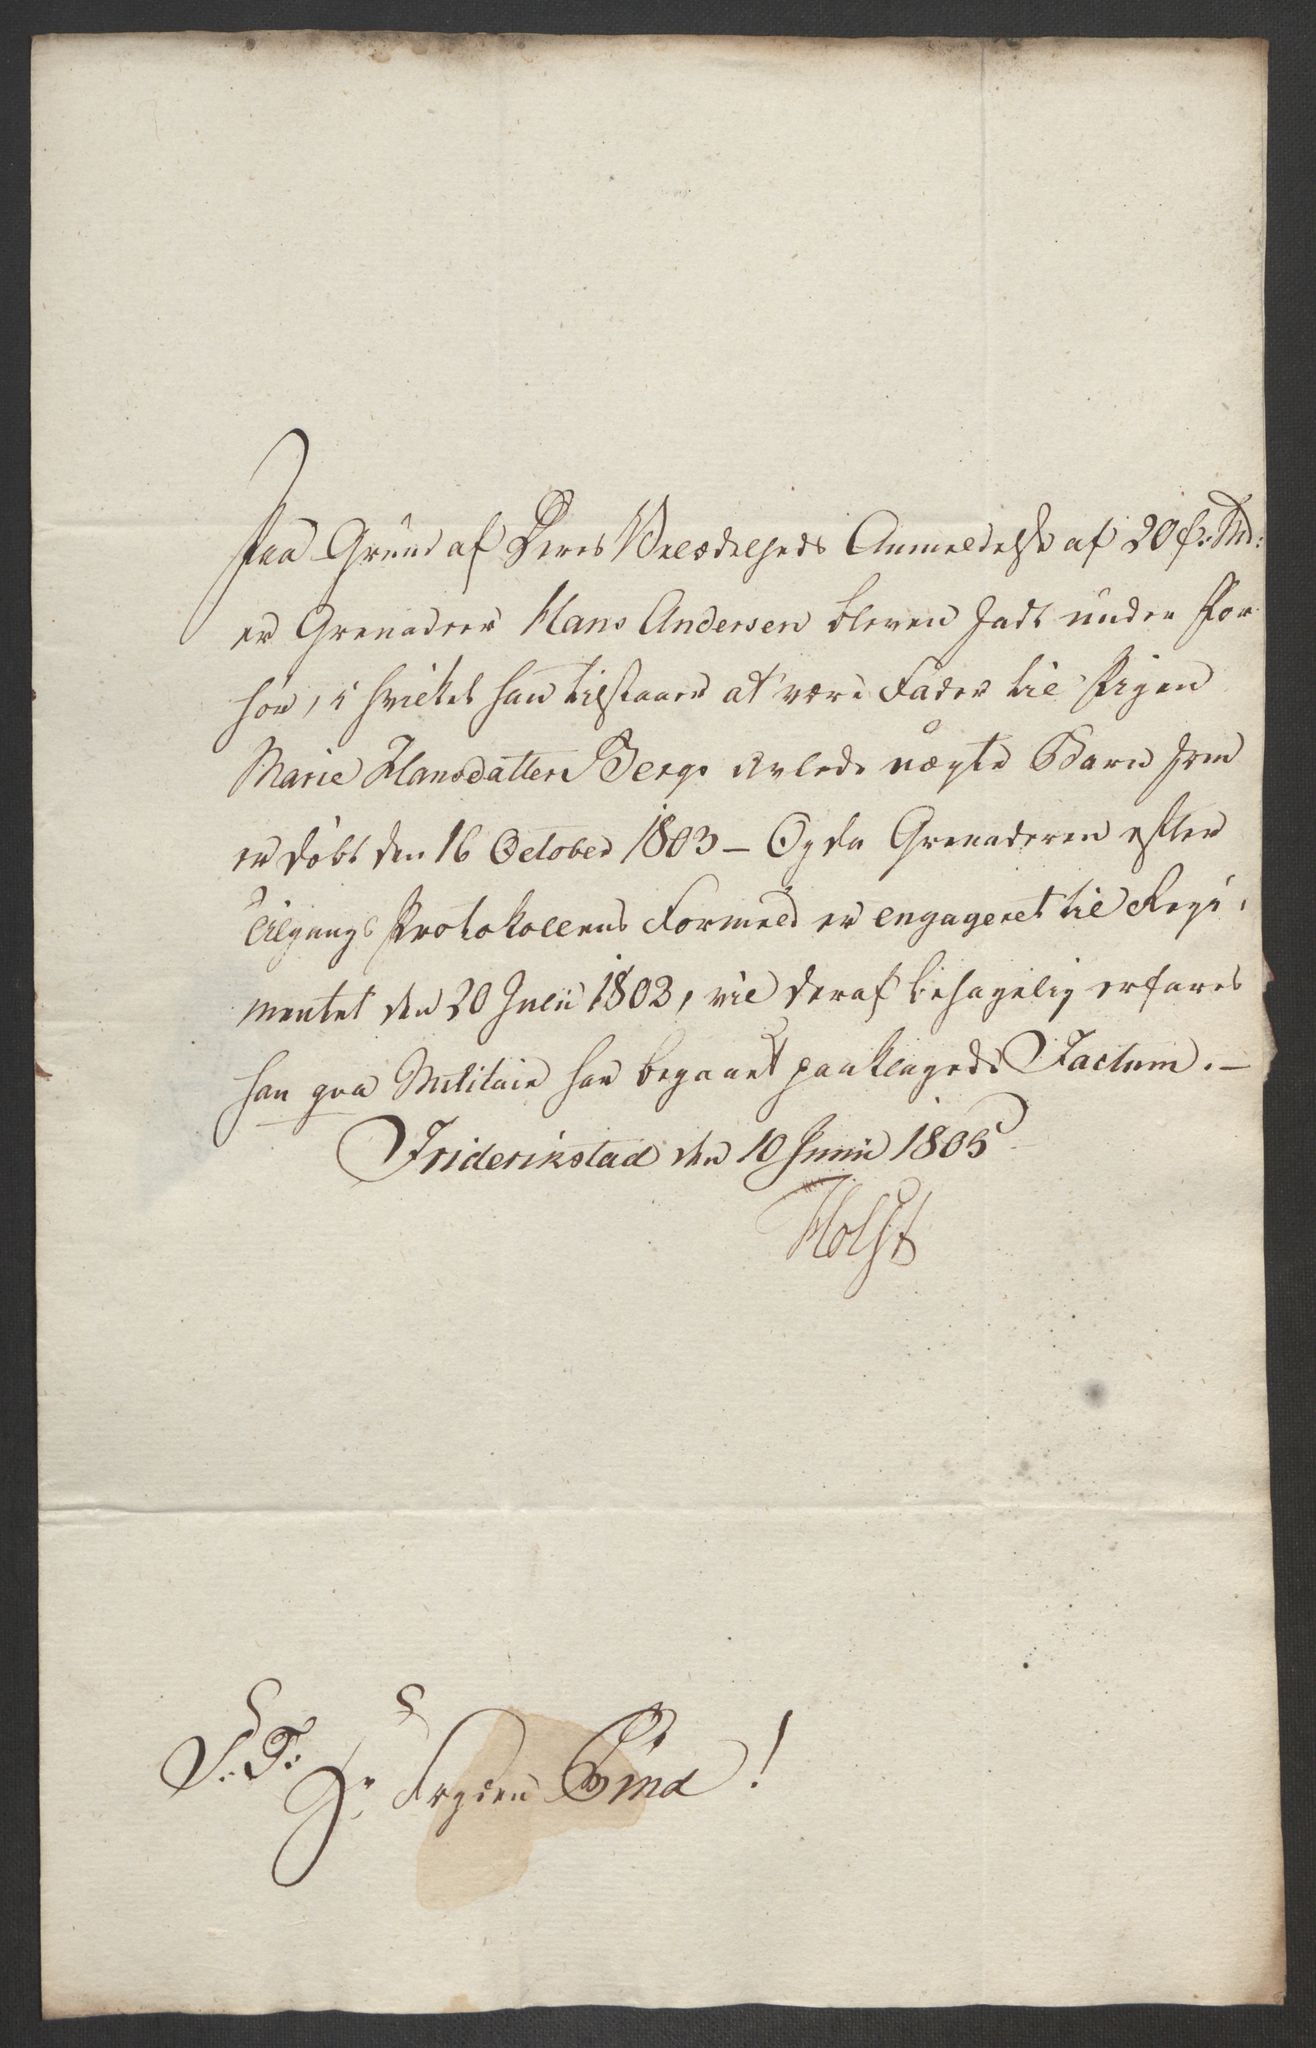 Paa Grund af Deres Velædelheds Anmeldelse af 20 f: Md:
er Grenadeer Hans Andersen bleven sadt under For
hør, i hvilket han tilstaaer at være Fader til Pigen
Marie Hansdatter Bergs avlede uægte Barn som
er døbt den 16 October 1803 – Og da Grenaderen efter
Tilgangs Protokollens Formeld er engageret til Regi,
mentet den 20 Julii 1802, vil deraf behagelig erfares
han qva Militair har begaaet paaklagede Factum. –
Friderikstad den 10 Junii 1805
Holst
S: T: Hr Fogden Bind!